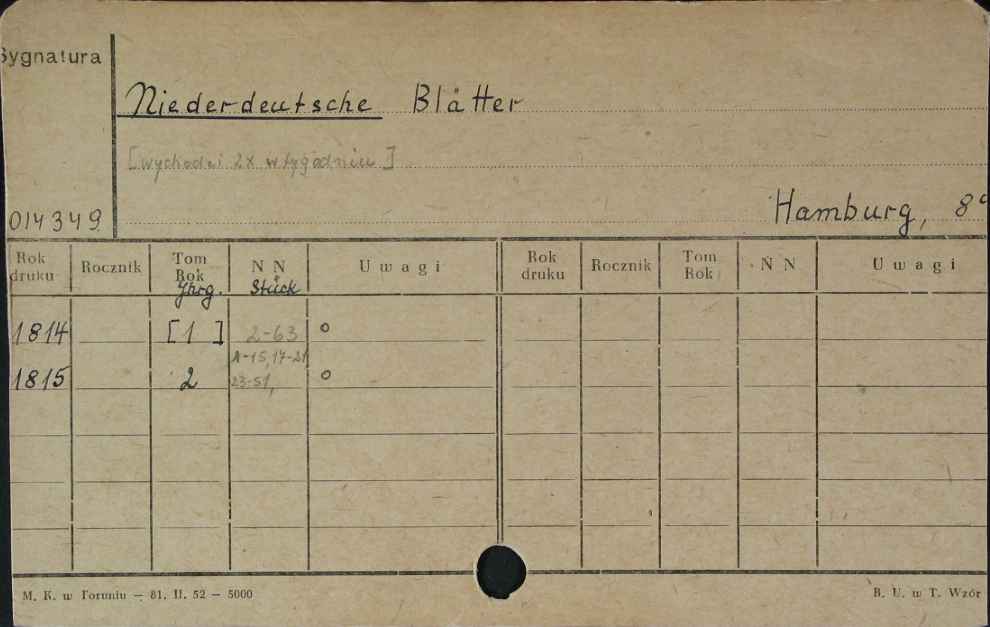 Sygnatura
Niederdeutsche Blätter
[wychodzi 2x w tygodniu]
Hamburg, 8°
014349
Rok druku Rocznik Tom Rok Jhrg. NN Stück Uwagi Rok druku Rocznik Tom Rok NN Uwagi
1814 [1] 2-63 o
1-15, 17-21
1815 2 23-51, o
M. K. w Toruniu — 81. II. 52 — 5000 B. U. w T. Wzór